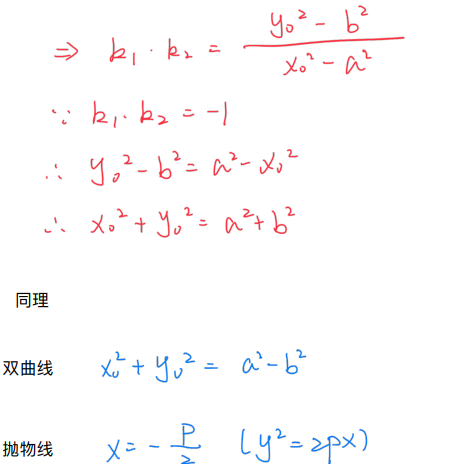 ⇒ k₁·k₂ = (y₀² - b²)/(x₀² - a²)
∵ k₁·k₂ = -1
∴ y₀² - b² = a² - x₀²
∴ x₀² + y₀² = a² + b²
同理
双曲线 x₀² + y₀² = a² - b²
抛物线 x = -P/2 (y² = 2px)